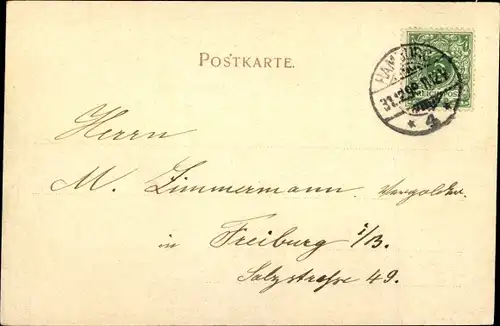 POSTKARTE.
HAMBURG
31.12.98.11-12V
* 4 *
5
REICHSPOST
Herrn
M. Zimmermann, Vergolder.
in Freiburg i/B.
Salzstrasse 49.